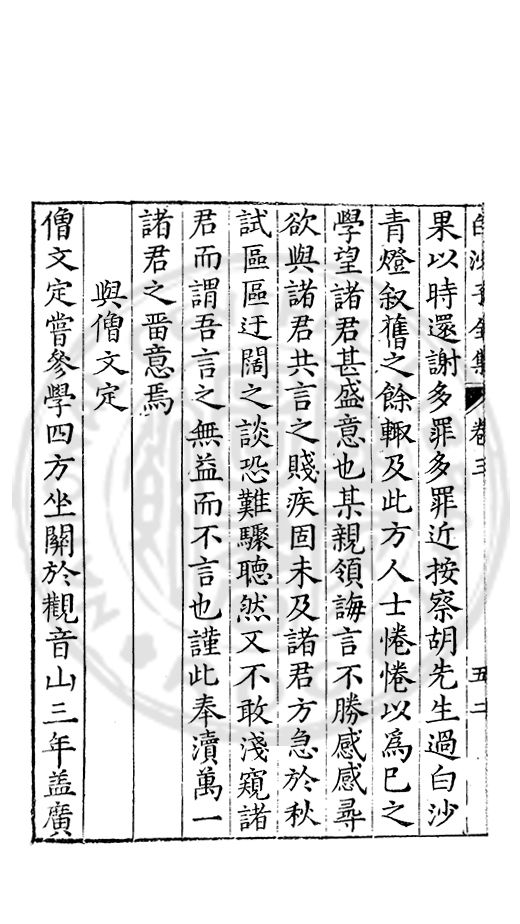 白沙子全集 卷三 五二
果以時還謝多罪多罪近按察胡先生過白沙
青燈叙舊之餘輙及此方人士惓惓以爲已之
學望諸君甚盛意也某親領誨言不勝感感尋
欲與諸君共言之賤疾固未及諸君方急於秋
試區區迂闊之談恐難驟聽然又不敢淺窺諸
君而謂吾言之無益而不言也謹此奉瀆萬一
諸君之畱意焉
與僧文定
僧文定嘗參學四方坐關於觀音山三年盖廣